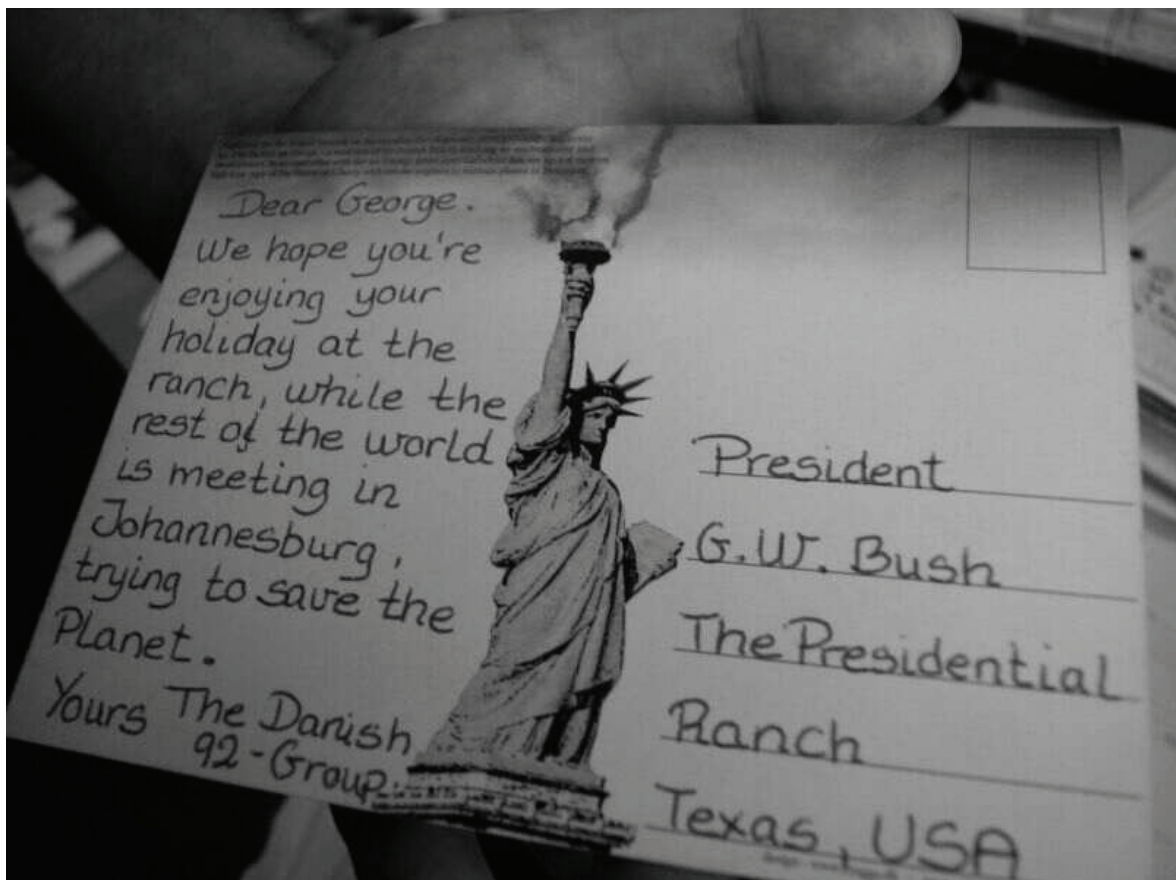 Dear George.
We hope you're
enjoying your
holiday at the
ranch, while the
rest of the world
is meeting in
Johannesburg,
trying to save the
Planet.
Yours The Danish
92-Group.
President
G.W. Bush
The Presidential
Ranch
Texas, USA